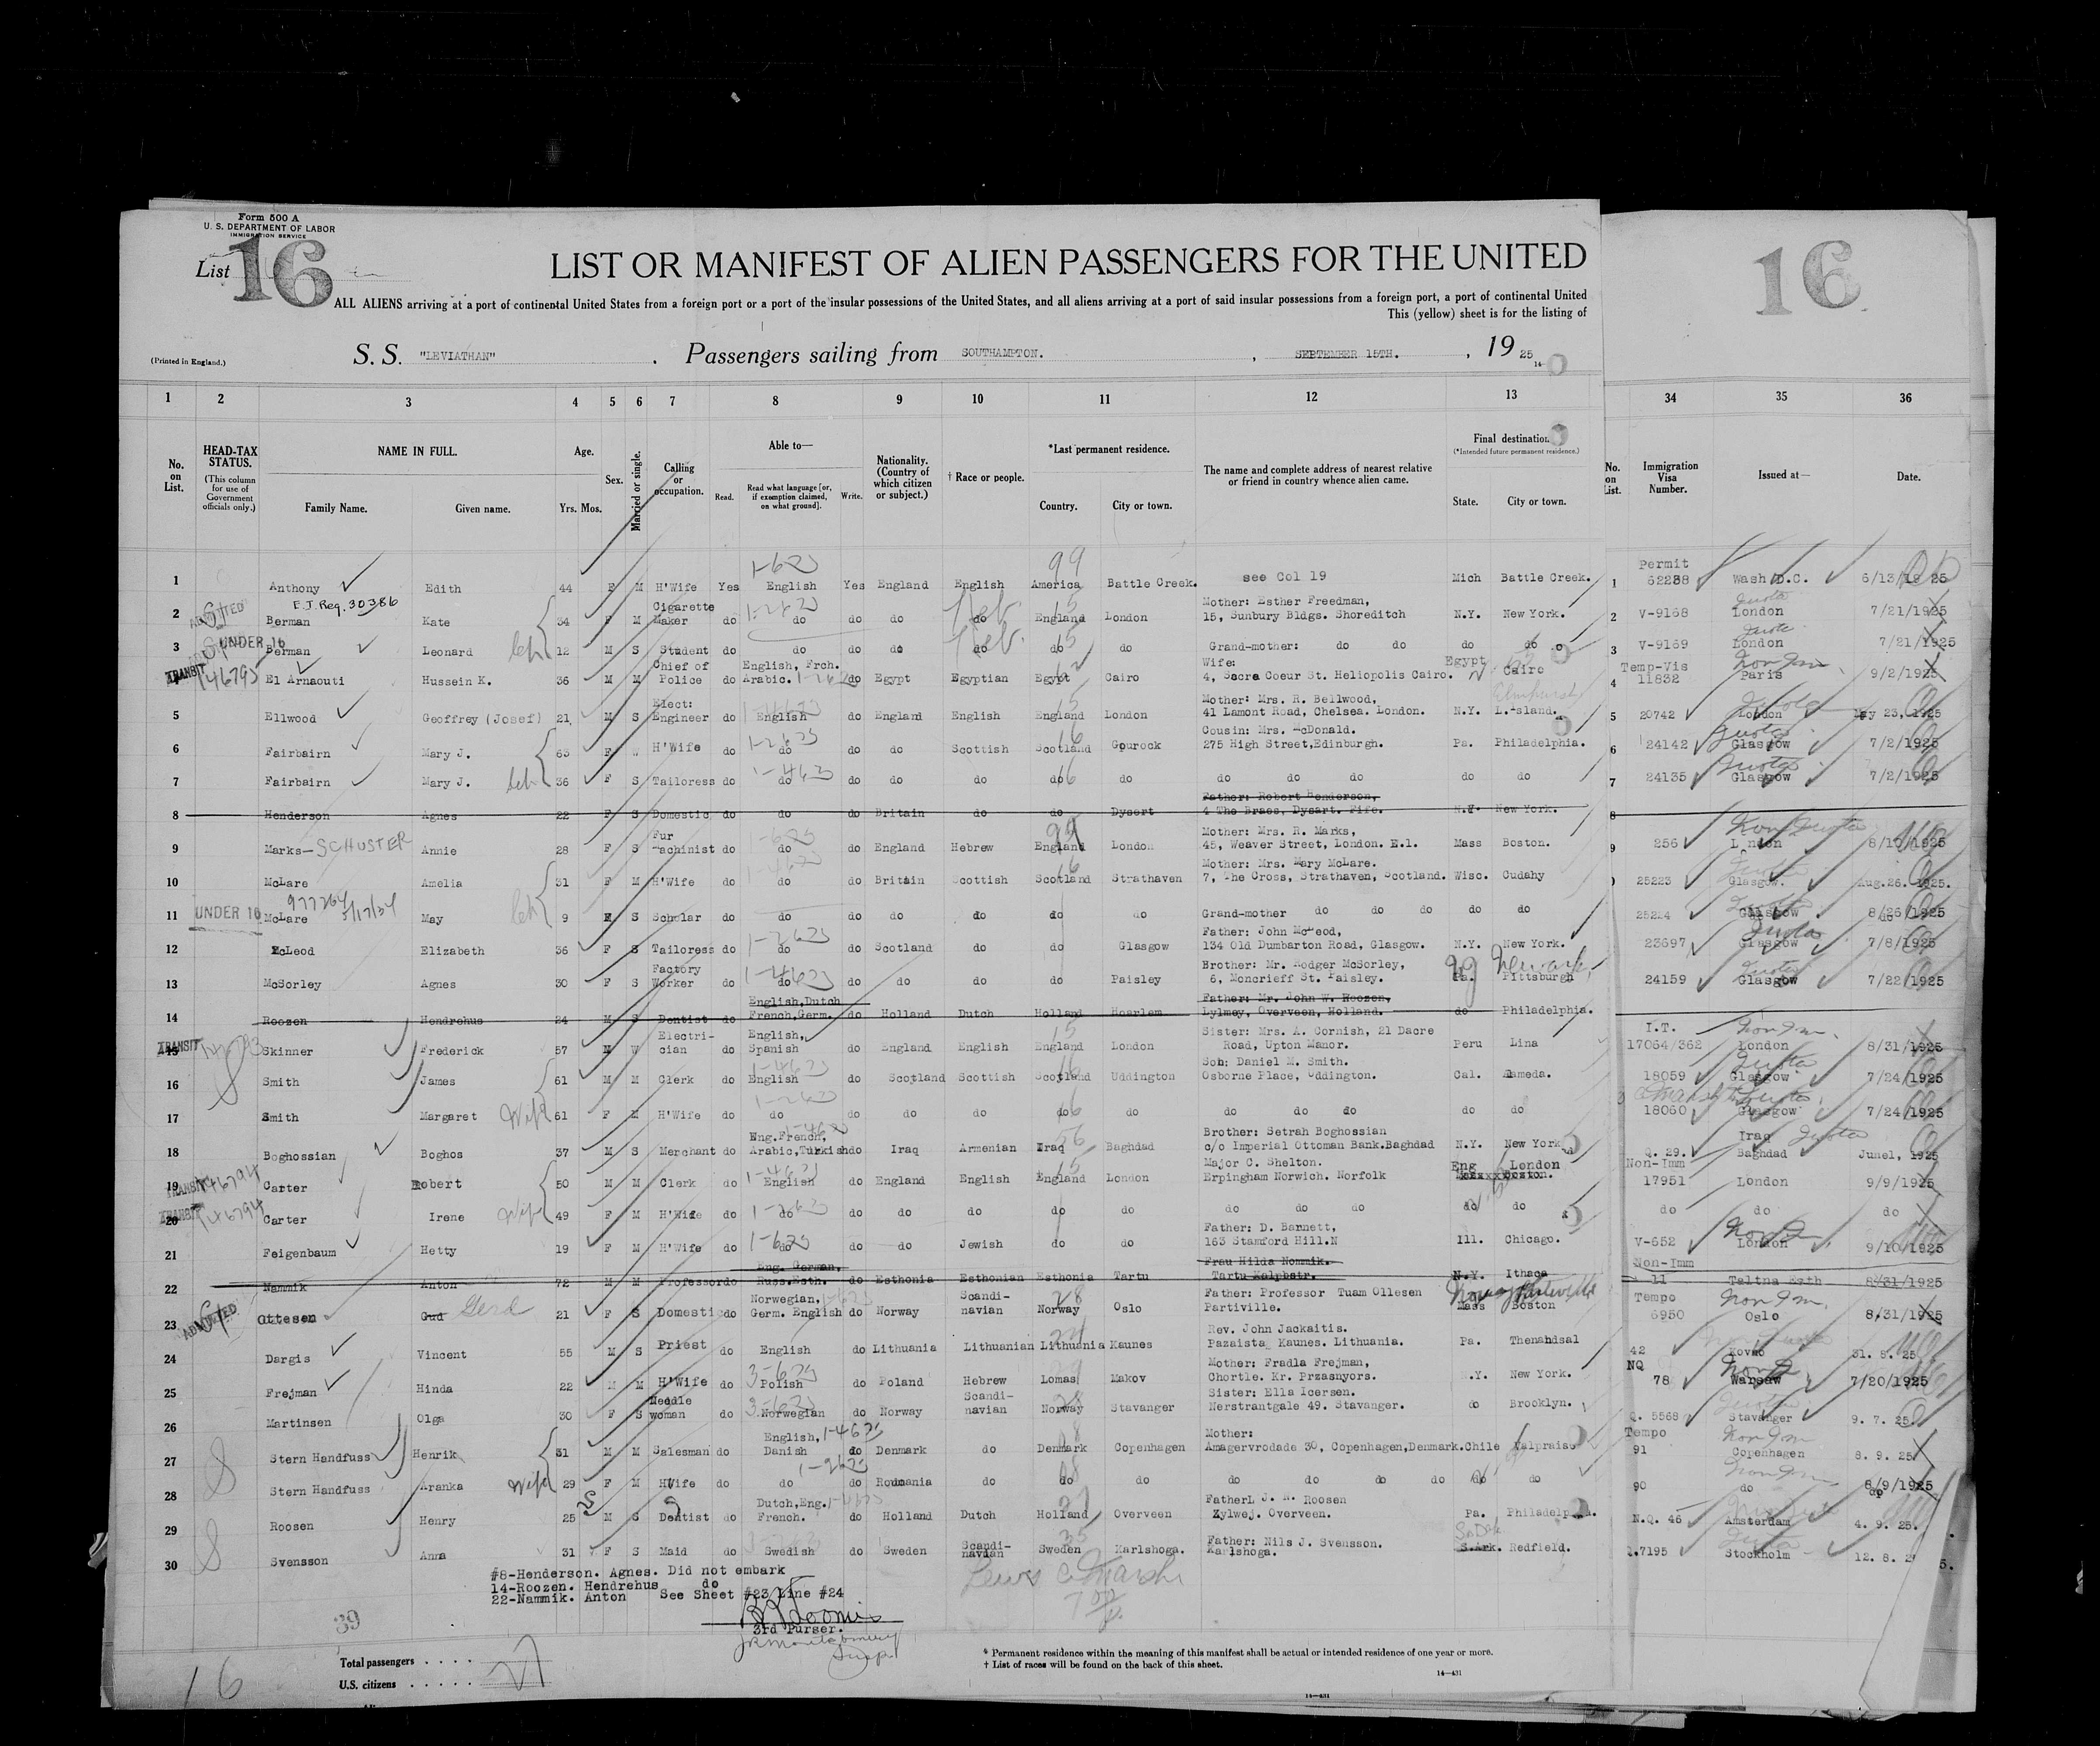 Form 500 A
U. S. DEPARTMENT OF LABOR
IMMIGRATION SERVICE
List 16
16
LIST OR MANIFEST OF ALIEN PASSENGERS FOR THE UNITED
ALL ALIENS arriving at a port of continental United States from a foreign port or a port of the insular possessions of the United States, and all aliens arriving at a port of said insular possessions from a foreign port, a port of continental United
This (yellow) sheet is for the listing of
(Printed in England.)
S. S. "LEVIATHAN" . Passengers sailing from SOUTHAMPTON. , SEPTEMBER 15TH. , 19 25
14
1 2 3 4 5 6 7 8 9 10 11 12 13 34 35 36
No. on List.
HEAD-TAX STATUS.
(This column for use of Government officials only.)
NAME IN FULL.
Family Name. Given name.
Age.
Yrs. Mos.
Sex.
Married or single.
Calling or occupation.
Able to—
Read. Read what language [or, if exemption claimed, on what ground]. Write.
Nationality. (Country of which citizen or subject.)
† Race or people.
*Last permanent residence.
Country. City or town.
The name and complete address of nearest relative or friend in country whence alien came.
Final destination.
(*Intended future permanent residence.)
State. City or town.
No. on List.
Immigration Visa Number.
Issued at—
Date.
1 Anthony Edith 44 F M H'Wife Yes English Yes England English America Battle Creek. see Col 19 Mich Battle Creek. 1 Permit 62238 Wash D.C. 6/13/19 25
1-623 99
E.J. Req. 30386
2 ADMITTED Berman Kate 34 F M Cigarette Maker do do do do do England London Mother: Esther Freedman, 15, Sunbury Bldgs. Shoreditch N.Y. New York. 2 V-9168 London 7/21/1925
Heb. 15
3 UNDER 16 Berman Leonard 12 M S Student do do do do do do do Grand-mother: do do do do 3 V-9169 London 7/21/1925
Heb. 15
4 TRANSIT 146795 El Arnaouti Hussein K. 36 M M Chief of Police do English, Frch. Arabic. do Egypt Egyptian Egypt Cairo Wife: 4, Sacre Coeur St. Heliopolis Cairo. Egypt Cairo 4 Temp-Vis 11832 Paris 9/2/1925
5 Ellwood Geoffrey (Josef) 21 M S Elect: Engineer do English do England English England London Mother: Mrs. R. Bellwood, 41 Lamont Road, Chelsea. London. N.Y. L.Island. 5 20742 London May 23, 1925
Elmhurst
6 Fairbairn Mary J. 63 F W H'Wife do do do do Scottish Scotland Gourock Cousin: Mrs. McDonald. 275 High Street, Edinburgh. Pa. Philadelphia. 6 24142 Glasgow 7/2/1925
7 Fairbairn Mary J. 36 F S Tailoress do do do do do do do do do do do do 7 24135 Glasgow 7/2/1925
8 Henderson Agnes 22 F S Domestic do do do Britain do do Dysert Father: Robert Henderson, 4 The Braes, Dysart. Fife. N.Y. New York. 8
9 Marks—SCHUSTER Annie 28 F S Fur Machinist do do do England Hebrew England London Mother: Mrs. R. Marks, 45, Weaver Street, London. E.1. Mass Boston. 9 256 London 1925
10 McLare Amelia 31 F M H'Wife do do do Britain Scottish Scotland Strathaven Mother: Mrs. Mary McLare. 7, The Cross, Strathaven, Scotland. Wisc. Cudahy 25223 Glasgow. Aug.26. 1925.
977264 5/17/34
11 UNDER 16 McLare May 9 F S Scholar do do do do do do do Grand-mother do do do do do 25224 Glasgow 8/26/1925
12 McLeod Elizabeth 36 F S Tailoress do do do Scotland do do Glasgow Father: John McLeod, 134 Old Dumbarton Road, Glasgow. N.Y. New York. 23697 Glasgow 7/8/1925
13 McSorley Agnes 30 F S Factory Worker do do do do do do Paisley Brother: Mr. Rodger McSorley, 6, Moncrieff St. Paisley. Pa. Pittsburgh 24159 Glasgow 7/22/1925
Newark,
14 Roozen Hendrehus 24 M S Dentist do English,Dutch French,Germ. do Holland Dutch Holland Haarlem Father: Mr. John W. Roozen, Lylmey, Overveen, Holland. do Philadelphia.
15 TRANSIT Skinner Frederick 57 M W Electri-cian do English, Spanish do England English England London Sister: Mrs. A. Cornish, 21 Dacre Road, Upton Manor. Peru Lina I.T. 17064/362 London 8/31/1925
16 Smith James 61 M M Clerk do English do Scotland Scottish Scotland Uddington Son: Daniel M. Smith. Osborne Place, Uddington. Cal. Lameda. 18059 Glasgow 7/24/1925
17 Smith Margaret Wife 61 F M H'Wife do do do do do do do do do do do do 18060 Glasgow 7/24/1925
18 Boghossian Boghos 37 M S Merchant do Eng.French, Arabic,Turkish do Iraq Armenian Iraq Baghdad Brother: Setrah Boghossian c/o Imperial Ottoman Bank.Baghdad N.Y. New York Q. 29. Iraq Baghdad June1, 1925
19 TRANSIT 146794 Carter Robert 50 M M Clerk do English do England English England London Major C. Shelton. Erpingham Norwich. Norfolk Eng London Boston. Non-Imm 17951 London 9/9/1925
20 TRANSIT 146794 Carter Irene Wife 49 F M H'Wife do do do do do do do do do do do do do do do
21 Feigenbaum Hetty 19 F M H'Wife do do do do Jewish do do Father: D. Barnett, 163 Stamford Hill.N Ill. Chicago. V-652 London 9/10/1925
22 Nammik Anton 72 M M Professor do Eng. German, Russ.Esth. do Esthonia Esthonian Esthonia Tartu Frau Hilda Nommik. Tartu Kalphstr. N.Y. Ithaca Non-Imm 11 Taltna Esth 8/31/1925
23 ADMITTED Ottesen Gud Gerd 21 F S Domestic do Norwegian, Germ. English do Norway Scandi-navian Norway Oslo Father: Professor Tuam Ollesen Partiville. Mass Boston Tempo 6950 Oslo 8/31/1925
24 Dargis Vincent 55 M S Priest do English do Lithuania Lithuanian Lithuania Kaunes Rev. John Jackaitis. Pazaista Kaunes. Lithuania. Pa. Thenahdsal 42 Kovno 31. 8. 25
25 Frejman Hinda 22 M H'Wife do Polish do Poland Hebrew Lomas Makov Mother: Fradla Frejman, Chortle. Kr. Przasnyors. N.Y. New York. NQ 78 Warsaw 7/20/1925
26 Martinsen Olga 30 F S Neddle woman do Norwegian do Norway Scandi-navian Norway Stavanger Sister: Ella Icersen. Nerstrantgale 49. Stavanger. do Brooklyn. Q. 5568 Stavanger 9. 7. 25
27 Stern Handfuss Henrik 31 M M Salesman do English, Danish do Denmark do Denmark Copenhagen Mother: Amagervrodade 30, Copenhagen,Denmark. Chile Valpraiso Tempo 91 Copenhagen 8. 9. 25
28 Stern Handfuss Aranka Wife 29 F M HWife do do do Roumania do do do do do do do do do 90 do 8/9/1925
29 Roosen Henry 25 M S Dentist do Dutch,Eng. French. do Holland Dutch Holland Overveen FatherL J. H. Roosen Zylwej. Overveen. Pa. Philadelp N.Q. 46 Amsterdam 4. 9. 25.
30 Svensson Anna 31 F S Maid do Swedish do Sweden Scandi-navian Sweden Karlshoga. Father: Nils J. Svensson. Karlshoga. S.Ark. Redfield. Q.7195 Stockholm 12. 8. 2
So Dak
#8-Henderson. Agnes. Did not embark
14-Roozen. Hendrehus do
22-Nammik. Anton See Sheet #23 Line #24
3rd Purser.
39
16
Total passengers . . . .
U.S. citizens . . . . .
* Permanent residence within the meaning of this manifest shall be actual or intended residence of one year or more.
† List of races will be found on the back of this sheet.
14—431
14—431